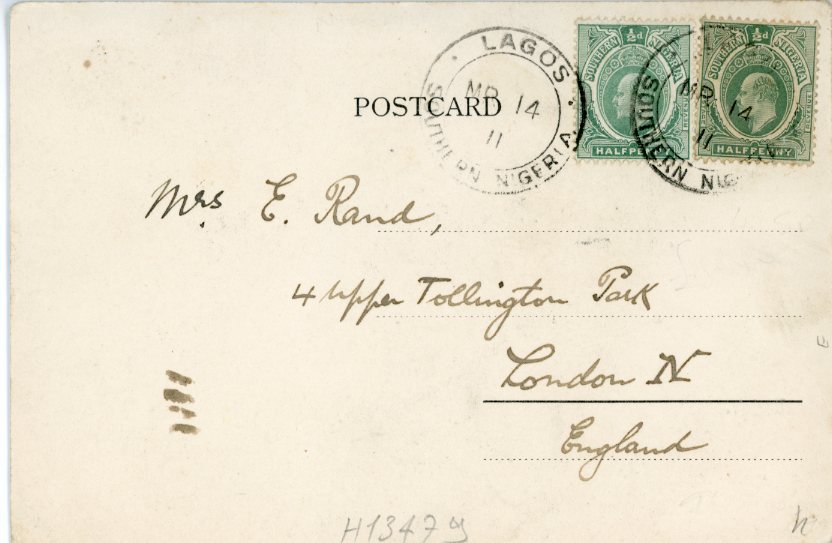 LAGOS
MR 14
11
SOUTHERN NIGERIA
½d
SOUTHERN NIGERIA
HALFPENNY
½d
SOUTHERN NIGERIA
POSTAGE
REVENUE
HALFPENNY
MR 14
11
SOUTHERN NIG
POSTCARD
Mrs E. Rand,
4 Upper Tollington Park
London N
England
H1347